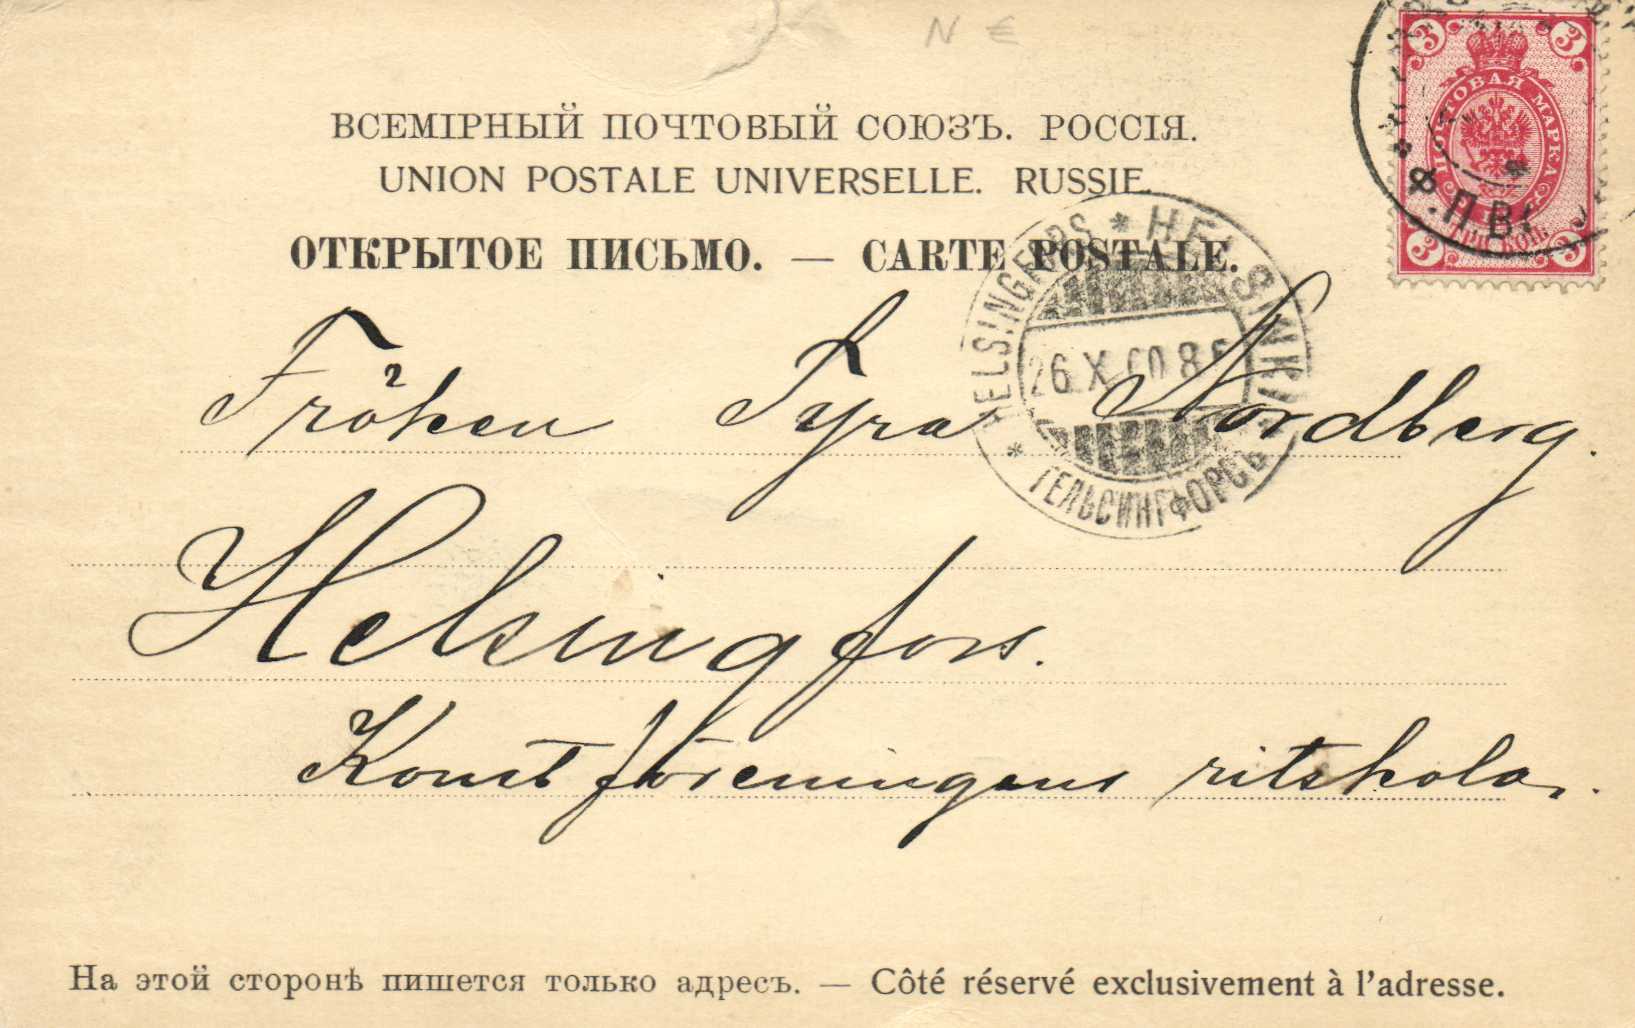 N €
ВСЕМІРНЫЙ ПОЧТОВЫЙ СОЮЗЪ. РОССІЯ.
UNION POSTALE UNIVERSELLE. RUSSIE.
ОТКРЫТОЕ ПИСЬМО. — CARTE POSTALE.
3 3
ПОЧТОВАЯ МАРКА
ТРИ КОП.
3 3
Ф.П.В.
HELSINGFORS * HELSINKI
26 X 00 8
* ГЕЛЬСИНГФОРСЪ
Fröken Tyra Nordberg.
Helsingfors.
Konstföreningens ritskola.
На этой сторонѣ пишется только адресъ. — Côté réservé exclusivement à l'adresse.